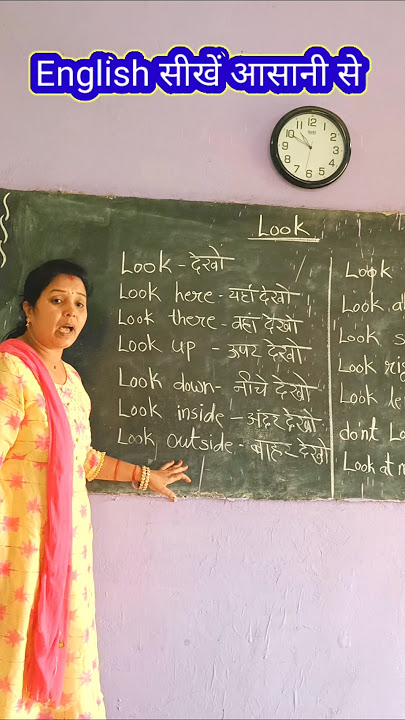 English सीखें आसानी से
12
11
1
10
2
9
3
8
4
7
5
6
Look
Look - देखो
Look here - यहाँ देखो
Look there - वहाँ देखो
Look up - ऊपर देखो
Look down - नीचे देखो
Look inside - अंदर देखो
Look outside - बाहर देखो
Look
Look
Look
Look
Look
dont
Look at